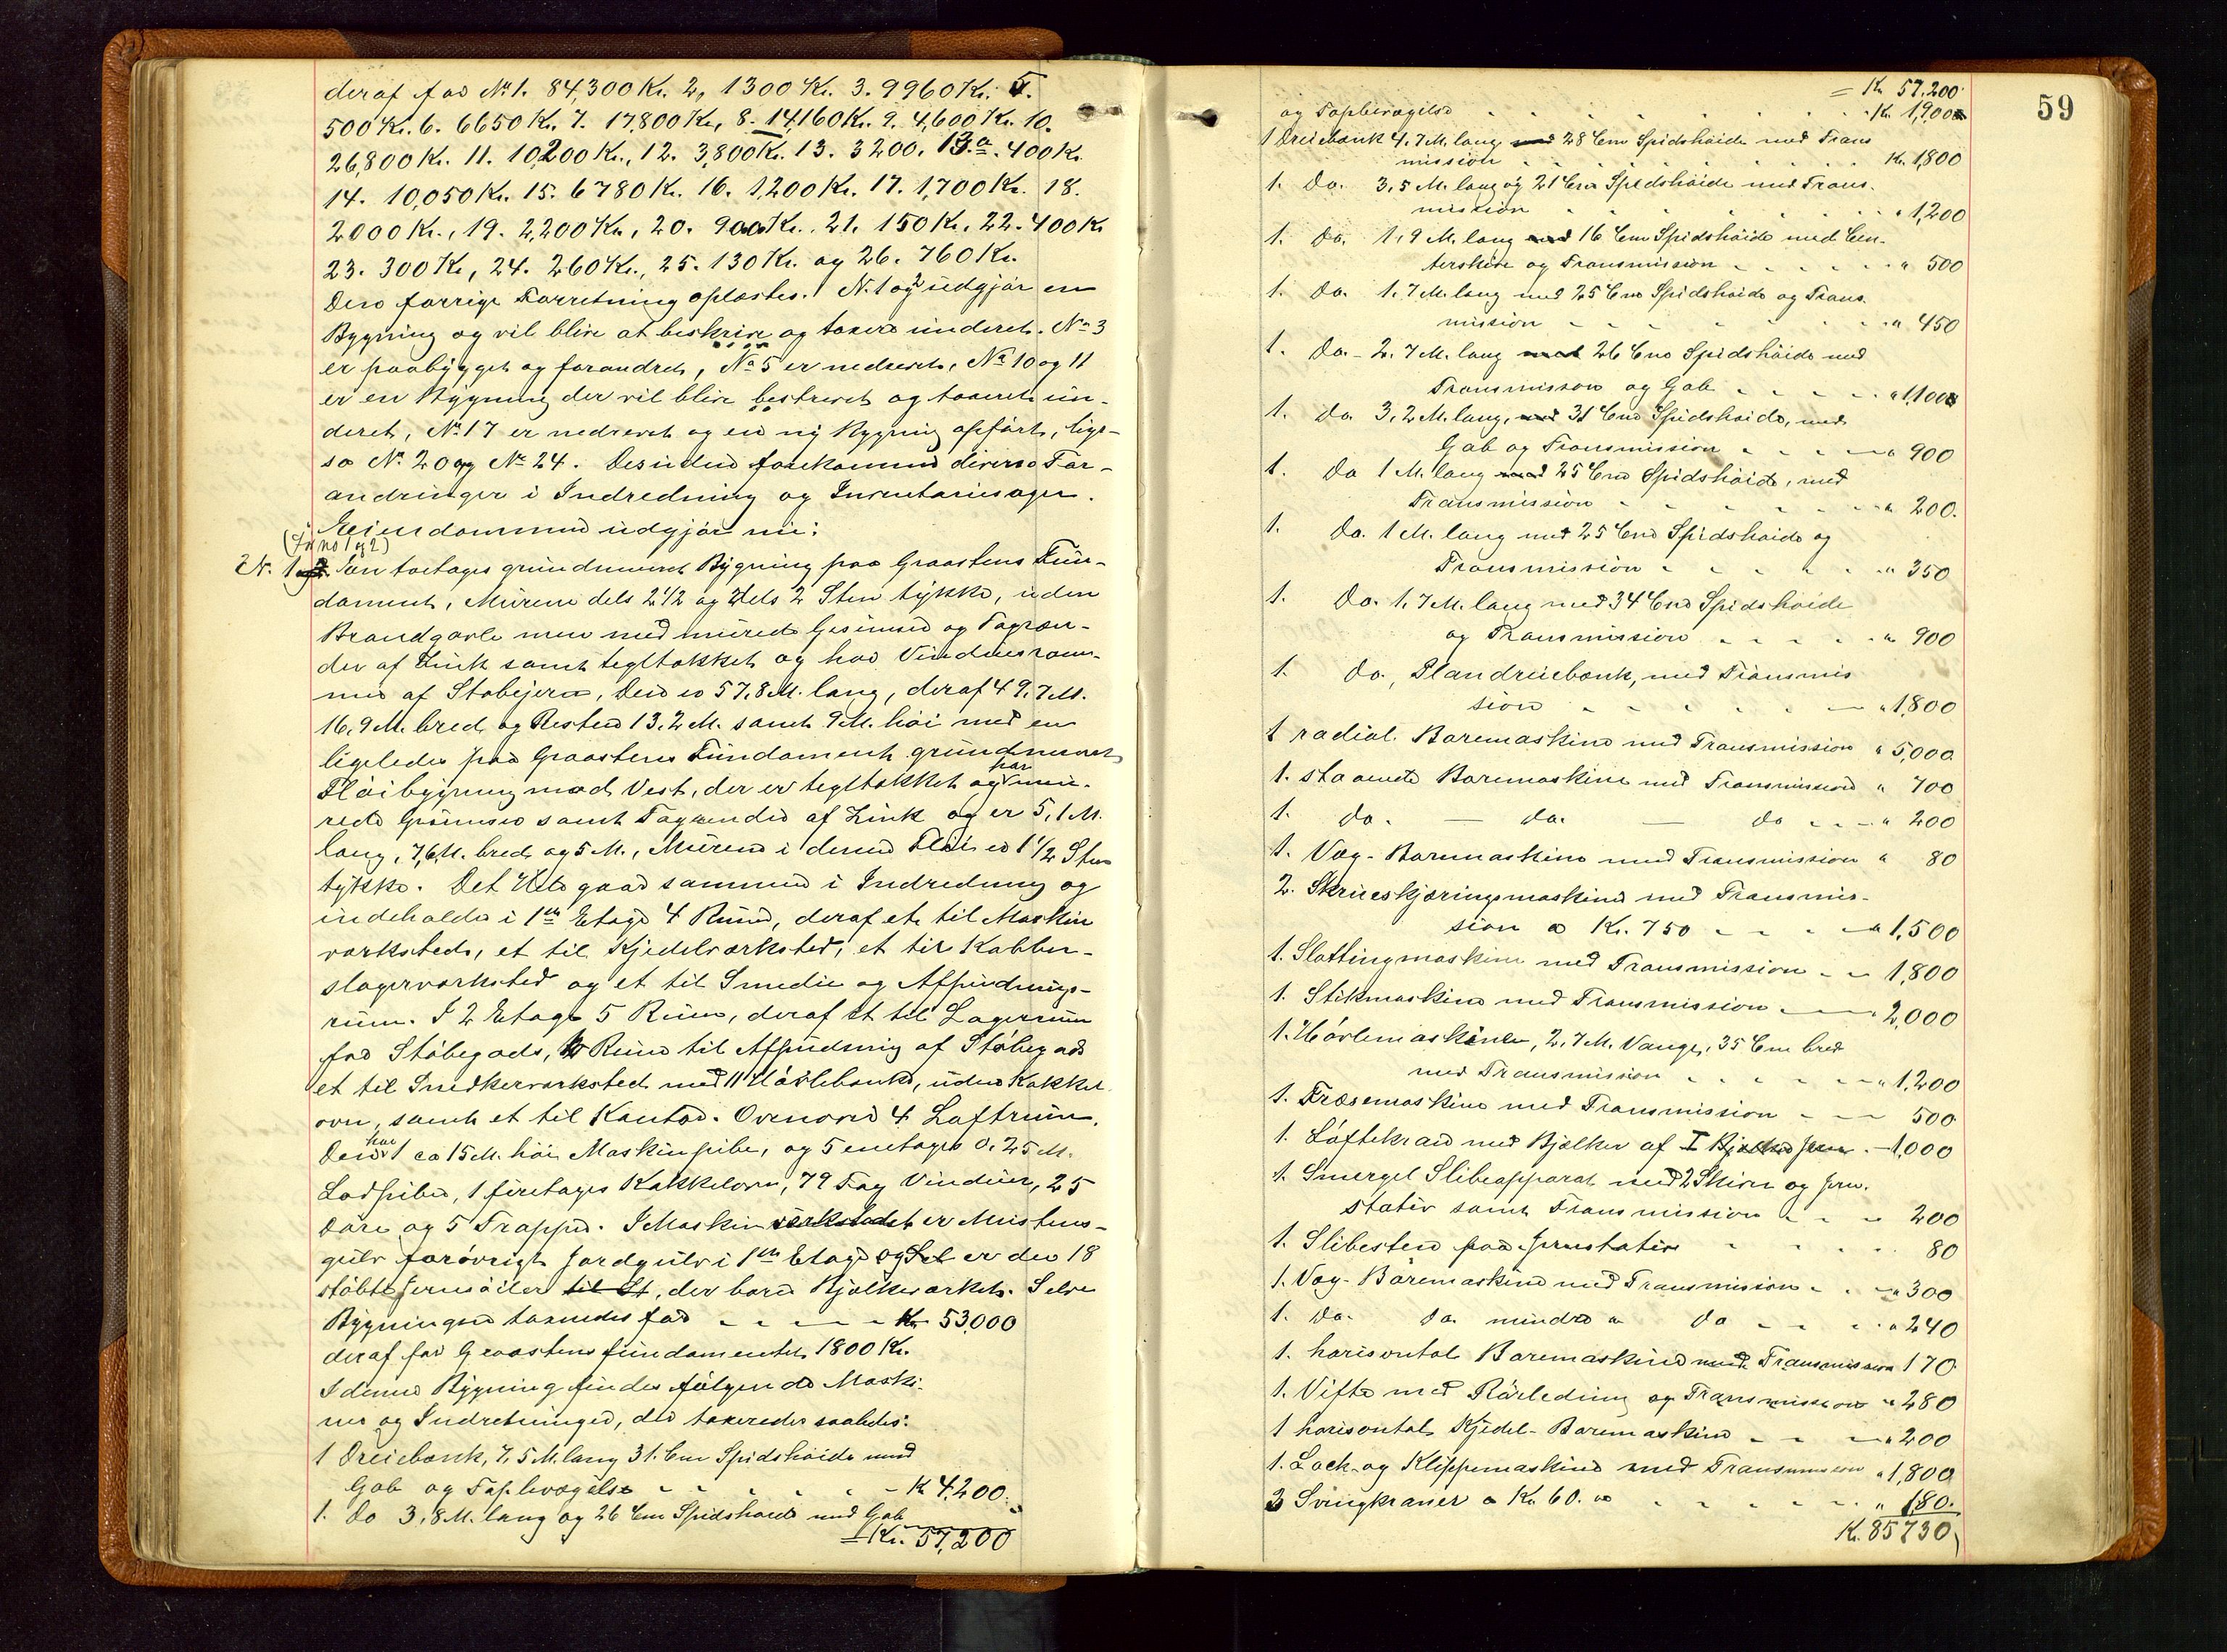 deraf for No 1. 84,300 Kr. 2, 1300 Kr. 3. 9960 Kr. 5.
500 Kr. 6. 6650 Kr. 7. 17,800 Kr, 8. 14,160 Kr. 9. 4,600 Kr. 10.
26,800 Kr. 11. 10,200 Kr., 12. 3,800 Kr. 13. 3200. 13.a. 400 Kr.
14. 10,050 Kr. 15. 6780 Kr. 16. 1,200 Kr. 17. 1,700 Kr. 18.
2000 Kr., 19. 2,200 Kr., 20. 900 Kr., 21. 150 Kr., 22. 400 Kr
23. 300 Kr, 24. 260 Kr., 25. 130 Kr. og 26. 760 Kr.
Den forrige Forretning oplæstes. N. 1 og 2 udgjør en
Bygning og vil blive at beskrive og taxere underet. No 3
er paabygget og forandret, No 5 er nedrevet, No 10 og 11
er en Bygning der vil blive beskrevet og taxeret un-
deret, No 17 er nedrevet og en ny Bygning opført, lige-
so No 20 og No 24. Desuden forekommer diverse For-
andringer i Indredning og Inventariesager.
Eiendommen udgjør nu:
(Fr. no 1 og 2)
N. 1 En toetages grundmuret Bygning paa Graastens Fun-
dament, Murene dels 2 1/2 og dels 2 Sten tykke, uden
Brandgavle men med murede Gesimser og Tagren-
der af Zink samt tegltækket og har Vinduesram-
mer af Støbejern, Den er 57,8 M. lang, deraf 49,7 M.
16,9 M. bred og Resten 13,2 M. samt 9 M. høi med en
ligeledes paa Graastens Fundament grundmuret
Fløibygning mod Vest, der er tegltækket og har mu-
rede Gesimser samt Tagrender af Zink og er 5,1 M.
lang, 7,6 M. bred og 5 M., Murene i denne Fløi er 1 1/2 Sten
tykke. Det Hele gaar sammen i Indredning og
indeholder i 1ste Etage 4 Rum, deraf et til Maskin
værksted, et til Kjedelværksted, et til Kobber-
slagerværksted og et til Smedie og Afpudsnings-
rum. I 2 Etage 5 Rum, deraf et til Lagerrum
for Støbegods, 2 Rum til Afpudsning af Støbegods
et til Snedkerværksted med 11 Høvlebænke, uden Kakkel
ovn, samt et til Kontor. Ovenover 4 Loftrum.
Den har 1 ca 15 M. høi Maskinpibe, og 5 enetages 0,25 M.
Lodpiber, 1 firetages Kakkelovn, 79 Fag Vinduer, 25
Døre og 5 Trapper. I Maskinværkstedet er Murstens-
gulv forøvrigt Jordgulv i 1ste Etage og er der 18
støbte Jernsøiler, der bærer Bjælkeværket. Selve
Bygningen taxeredes for - - - - Kr 53,000
deraf for Graastensfundamentet 1800 Kr.
I denne Bygning findes følgende Maski-
ner og Indretninger, der taxeredes saaledes:
1 Dreiebænk, 7,5 M. lang 31. Cm Spidshøide med
Gab og Tapbevægelse - - - - - K 4,200.
1. Do 3,8 M. lang og 26 Cm Spidshøide med Gab
= Kr. 57,200
59
= K 57,200
og Tapbevægelse - - - - - - Kr. 1,900
1 Dreiebænk 4,7 M. lang 28 Cm Spidshøide med Trans
mission - - - - - - Kr. 1,800
1. Do. 3,5 M. lang og 21 Cm Spidshøide med Trans-
mission - - - - - - " 1,200
1. Do. 1,9 M. lang 16 Cm Spidshøide med Cen-
terskive og Transmission - - - - - " 500
1. Do. 1,7 M. lang med 25 Cm Spidshøide og Trans-
mission - - - - - - " 450
1. Do. - 2,7 M. lang 26 Cm Spidshøide med
Transmission og Gab - - - - - " 1,100
1. Do 3,2 M. lang, 31 Cm Spidshøide, med
Gab og Transmission - - - - " 900
1. Do 1 M. lang 25 Cm Spidshøide, med
Transmission - - - - - - " 200.
1. Do. 1 M. lang med 25 Cm Spidshøide og
Transmission - - - - - " 350
1. Do. 1,7 M. lang med 34 Cm Spidshøide
og Transmission - - - - - " 900
1. Do., Plandreiebænk, med Transmis
sion - - - - - - " 1,800
1 radial. Boremaskine med Transmission " 5,000
1. staaende Boremaskine med Transmission " 700
1. do. — do. — do - - - " 200
1. Væg-Boremaskine med Transmission " 80
2. Skrueskjæringsmaskiner med Transmis-
sion a Kr. 750 - - - - " 1,500
1. Slottingmaskine med Transmission - - 1,800
1. Stikmaskine med Transmission - - 2,000
1. Høvlemaskine, 2,7 M. Vange, 35 Cm bred
med Transmission - - - - - " 1,200
1. Fræsemaskine med Transmission - - - 500
1. Løftekran med Bjælker af I Jern. - 1,000
1. Smergel Slibeapparat med 2 Skiver og Jern-
stativ samt Transmission - - - 200
1. Slibesten paa Jernstativ - - - - 80
1. Væg-Boremaskine med Transmission - - - " 300
1. Do. Do. mindre " do - - - - " 240
1. horisontal Boremaskine med Transmission 170
1. Vifte med Rørledning og Transmission " 280
1 horisontal Kjedel-Boremaskine - - - " 200
1. Lock- og Klippemaskine med Transmission " 1,800
3 Svingkraner a Kr. 60.00 - - - - - " 180.
Kr. 85730